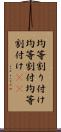 均等割り付け
均等割付均等
割付け